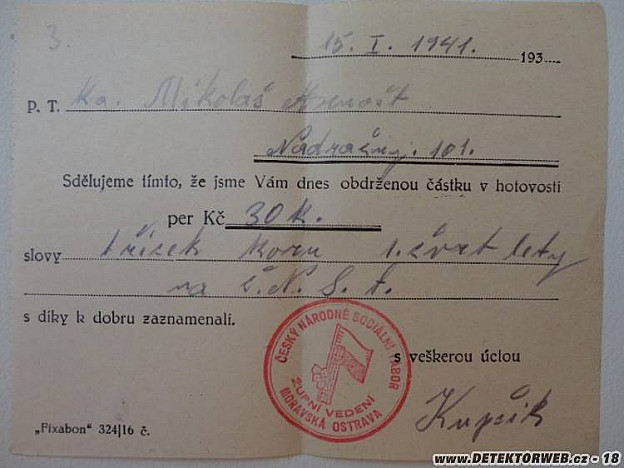 3.
15. I. 1941. 193
P. T. Ka. Mikoláš Arnošt
Nádražny. 101.
Sdělujeme tímto, že jsme Vám dnes obdrženou částku v hotovosti
per Kč 30 k.
slovy třicek korun 1. čvrt lety
na č. N. S. t.
s díky k dobru zaznamenali.
ČESKÝ NÁRODNĚ SOCIÁLNÍ TÁBOR
ŽUPNÍ VEDENÍ
MORAVSKÁ OSTRAVA
s veškerou úctou
Kupčik
„Fixabon" 324|16 č.
www.DETEKTORWEB.cz - 18